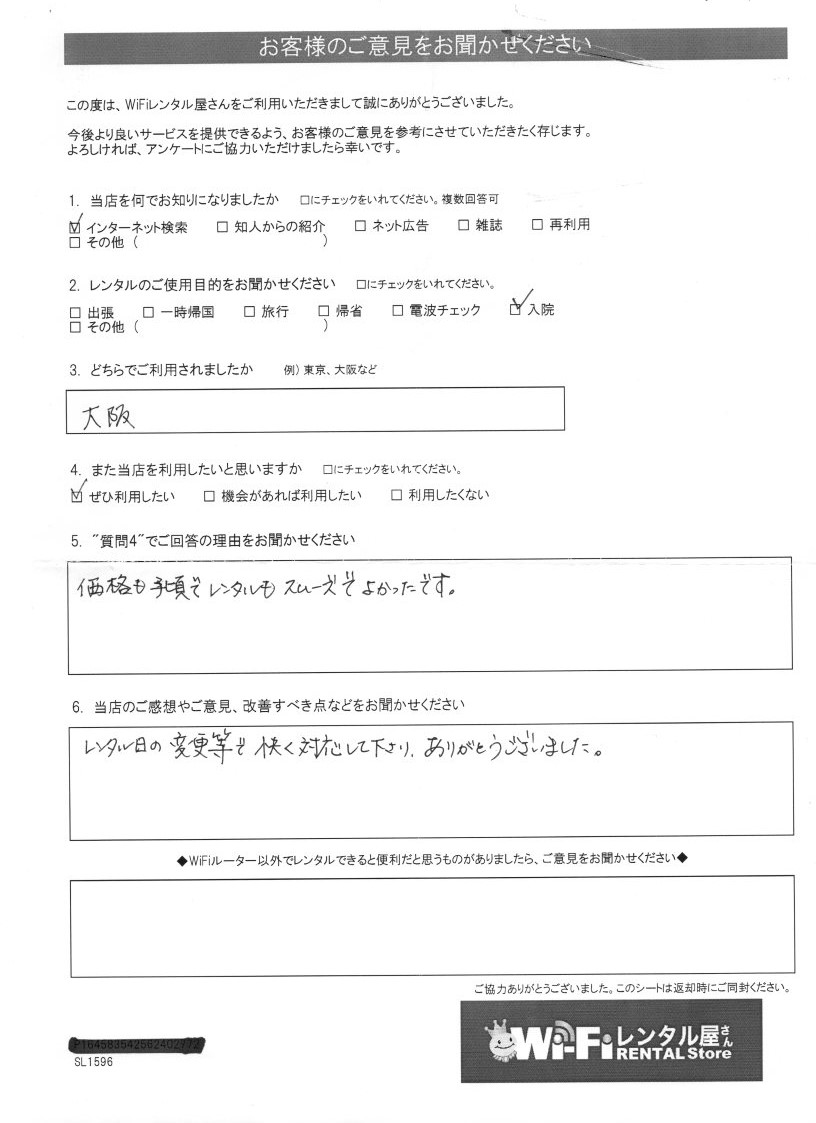 お客様のご意見をお聞かせください
この度は、WiFiレンタル屋さんをご利用いただきまして誠にありがとうございました。
今後より良いサービスを提供できるよう、お客様のご意見を参考にさせていただきたく存じます。
よろしければ、アンケートにご協力いただけましたら幸いです。
1. 当店を何でお知りになりましたか □にチェックをいれてください。複数回答可
☑ インターネット検索 □ 知人からの紹介 □ ネット広告 □ 雑誌 □ 再利用
□ その他 ( )
2. レンタルのご使用目的をお聞かせください □にチェックをいれてください。
□ 出張 □ 一時帰国 □ 旅行 □ 帰省 □ 電波チェック ☑ 入院
□ その他 ( )
3. どちらでご利用されましたか 例) 東京、大阪など
大阪
4. また当店を利用したいと思いますか □にチェックをいれてください。
☑ ぜひ利用したい □ 機会があれば利用したい □ 利用したくない
5. "質問4"でご回答の理由をお聞かせください
価格も手頃でレンタルもスムーズでよかったです。
6. 当店のご感想やご意見、改善すべき点などをお聞かせください
レンタル日の変更等で快く対応して下さり、ありがとうございました。
◆WiFiルーター以外でレンタルできると便利だと思うものがありましたら、ご意見をお聞かせください◆
ご協力ありがとうございました。このシートは返却時にご同封ください。
Wi-Fiレンタル屋さん
RENTAL Store
SL1596